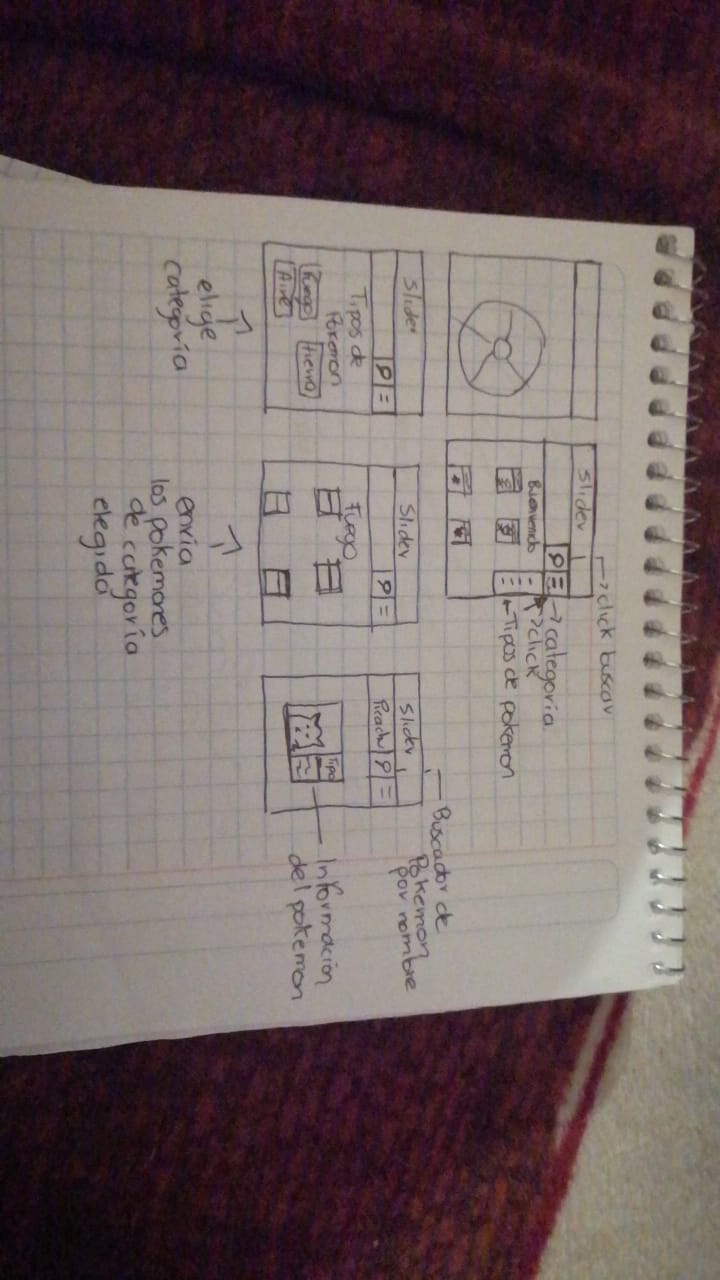 ->click buscar
Slider
->categoria
Bienvenido
>click
<-Tipos de pokemon
Slider
Tipos de
Pokemon
Fuego
tierra
Aire
elige
categoría
Slider
Fuego
envia
los pokemones
de categoría
elegida
Buscador de
Pokemon
por nombre
Slider
Picachu
Tipo
Información
del pokemon